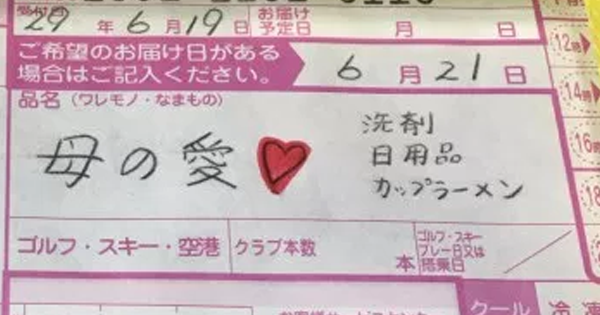 29年6月19日 お届け予定日 月 日
ご希望のお届け日がある
場合はご記入ください。
6月21日
品名（ワレモノ・なまもの）
母の愛
洗剤
日用品
カップラーメン
ゴルフ・スキー・空港
クラブ本数 本
ゴルフ・スキー
プレー日又は
搭乗日
12時
14時
16
18
クール